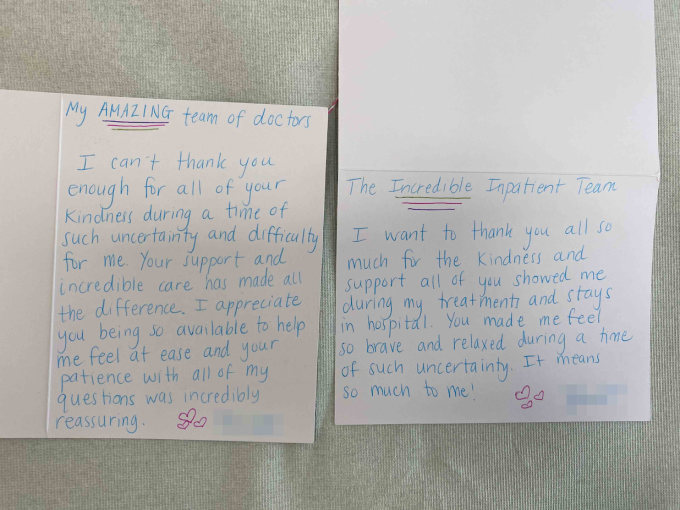 My AMAZING team of doctors
I can't thank you
enough for all of your
kindness during a time of
such uncertainty and difficulty
for me. Your support and
incredible care has made all
the difference. I appreciate
you being so available to help
me feel at ease and your
patience with all of my
questions was incredibly
reassuring.
The Incredible Inpatient Team
I want to thank you all so
much for the kindness and
support all of you showed me
during my treatments and stays
in hospital. You made me feel
so brave and relaxed during a time
of such uncertainty. It means
so much to me!